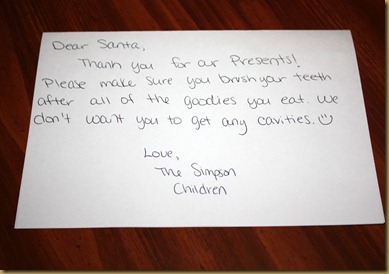 Dear Santa,
Thank you for our Presents!
Please make sure you brush your teeth
after all of the goodies you eat. We
don't want you to get any cavities.☺
Love,
The Simpson
Children